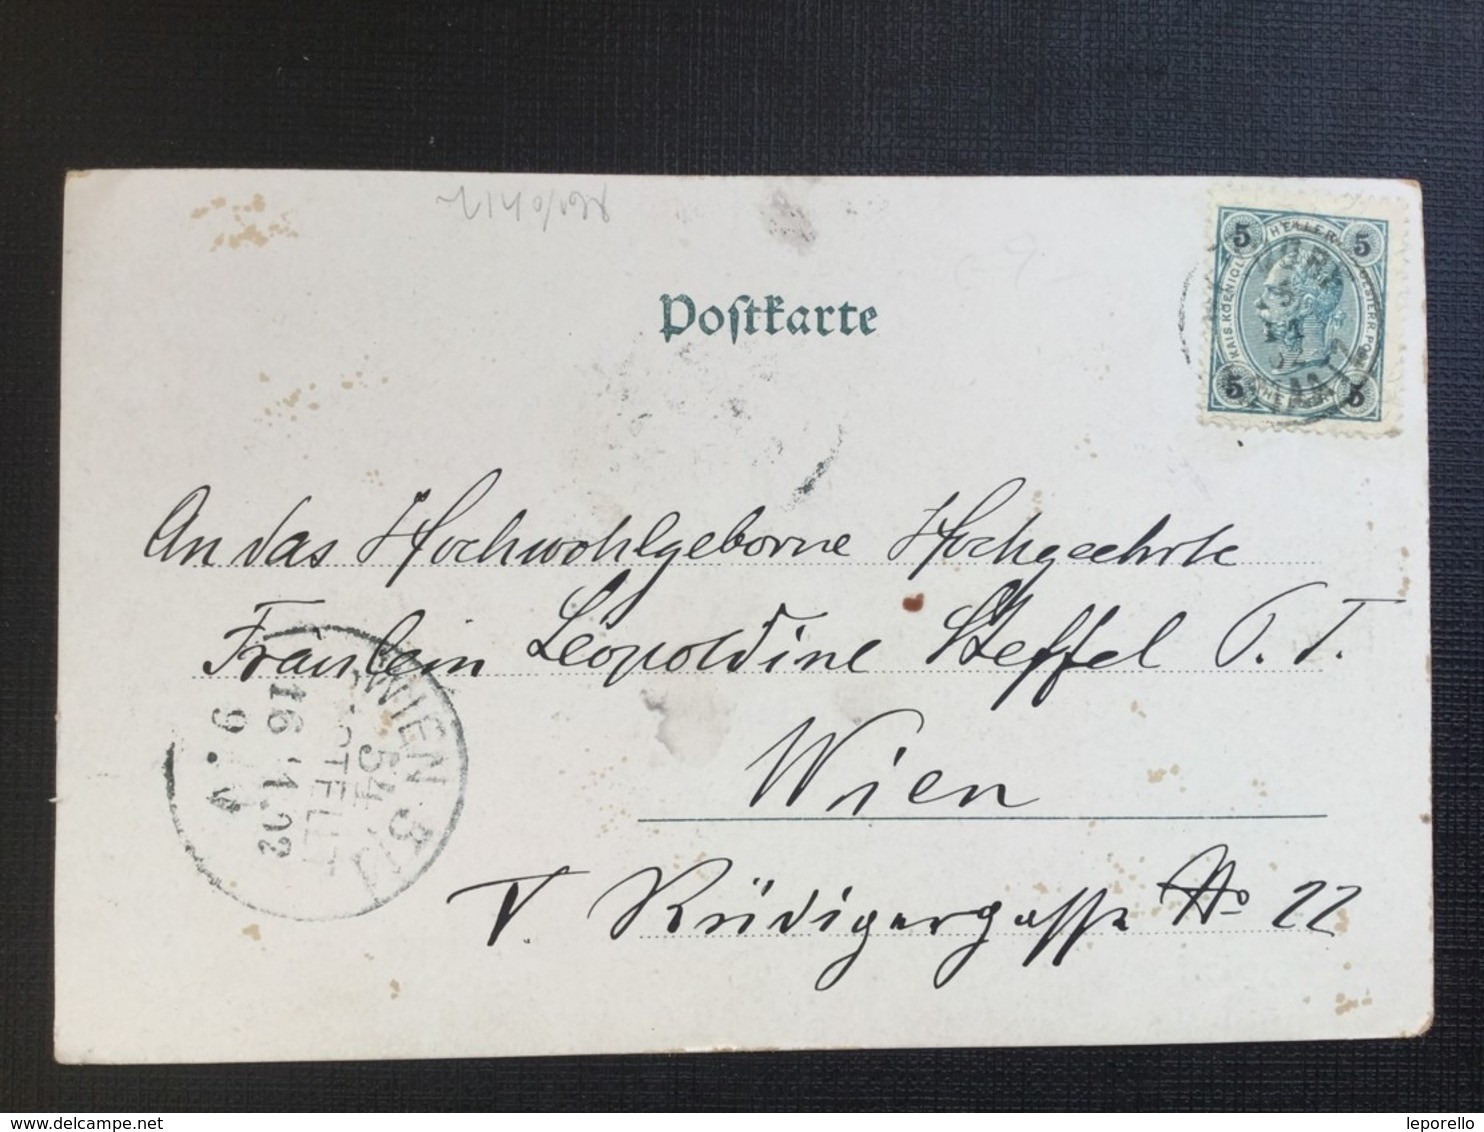 Postkarte
5 HELLER 5
KAIS. KOENIGL. OESTERR. POST
5 5
An das Hochwohlgeborne Hochgeehrte
Fräulein Leopoldine Steffel P. T.
Wien
V. Rüdigergasse No 22
WIEN 5/1
54
BESTELLT
16 1.02
9. V
leporello